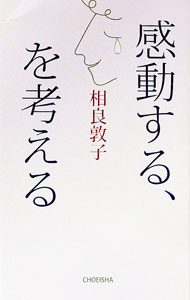 感動する、
を考える
相良敦子
CHOEISHA